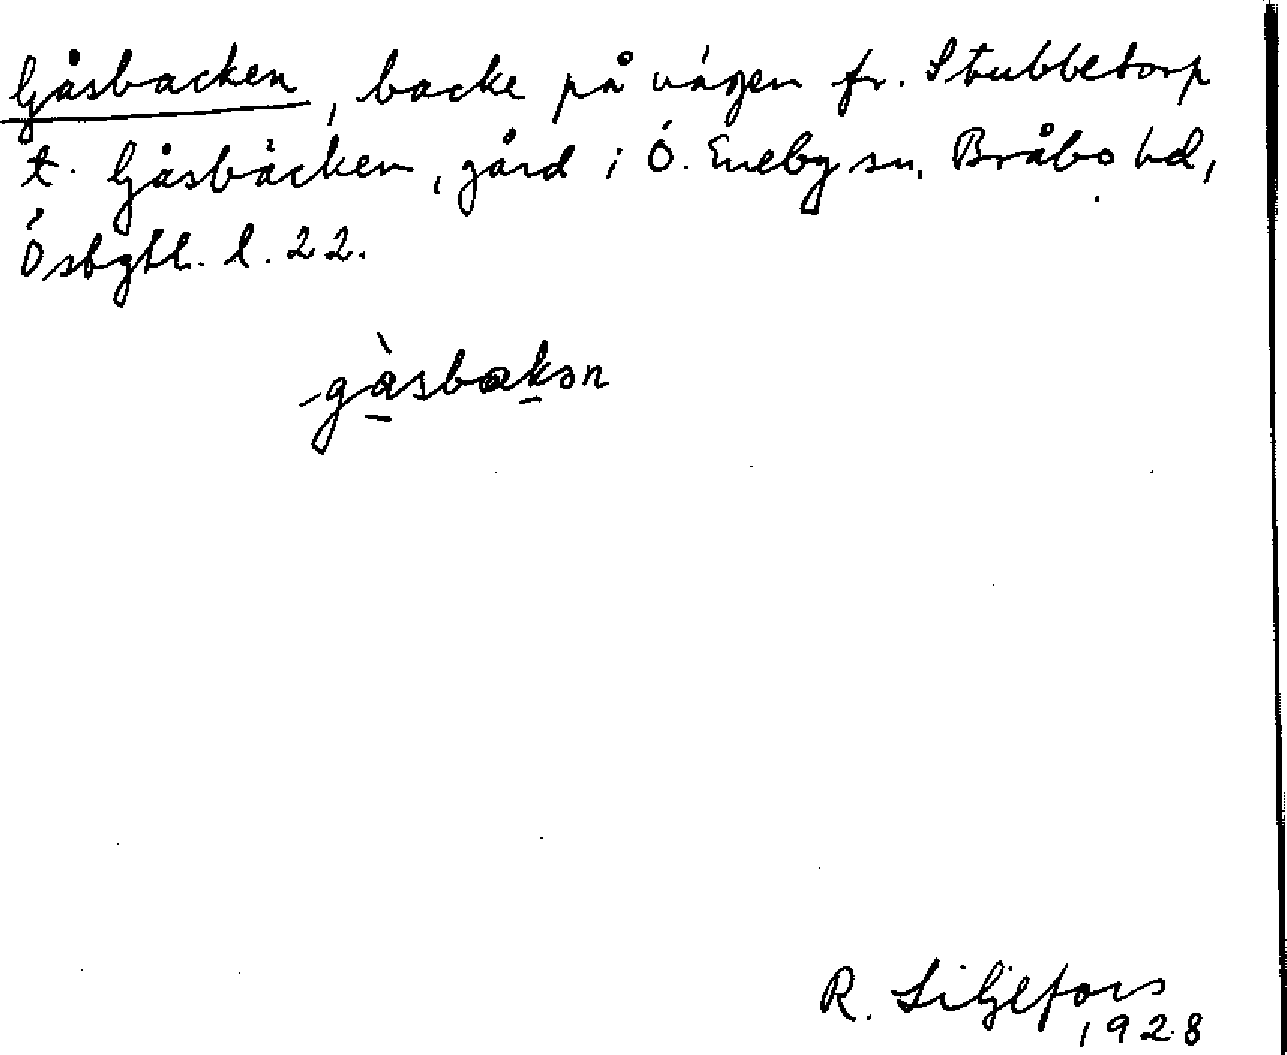 Gåsbacken, backe på vägen fr. Stubbetorp
t. Gåsbäcken, gård i Ö. Eneby sn, Bråbo hd,
Ösbgtl. l. 22.
gàsbakən
R. Liljefors
1928